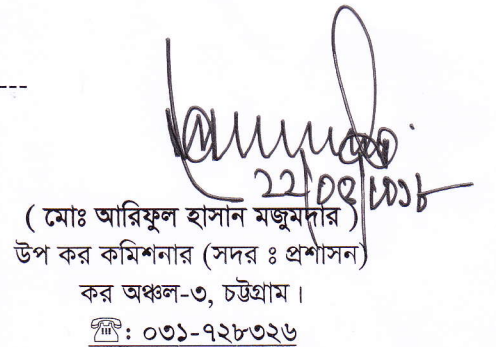 ( মোঃ আরিফুল হাসান মজুমদার )
উপ কর কমিশনার (সদর ঃ প্রশাসন)
কর অঞ্চল-৩, চট্টগ্রাম।
☎: ০৩১-৭২৮৩২৬